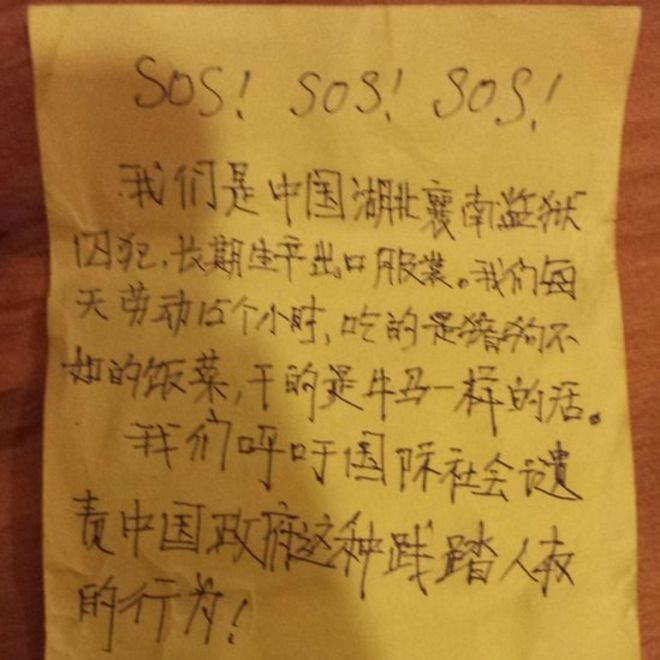 SOS! SOS! SOS!
我们是中国湖北襄南监狱
囚犯,长期生产出口服装。我们每
天劳动15个小时,吃的是猪狗不
如的饭菜,干的是牛马一样的活。
我们呼吁国际社会谴
责中国政府这种践踏人权
的行为!